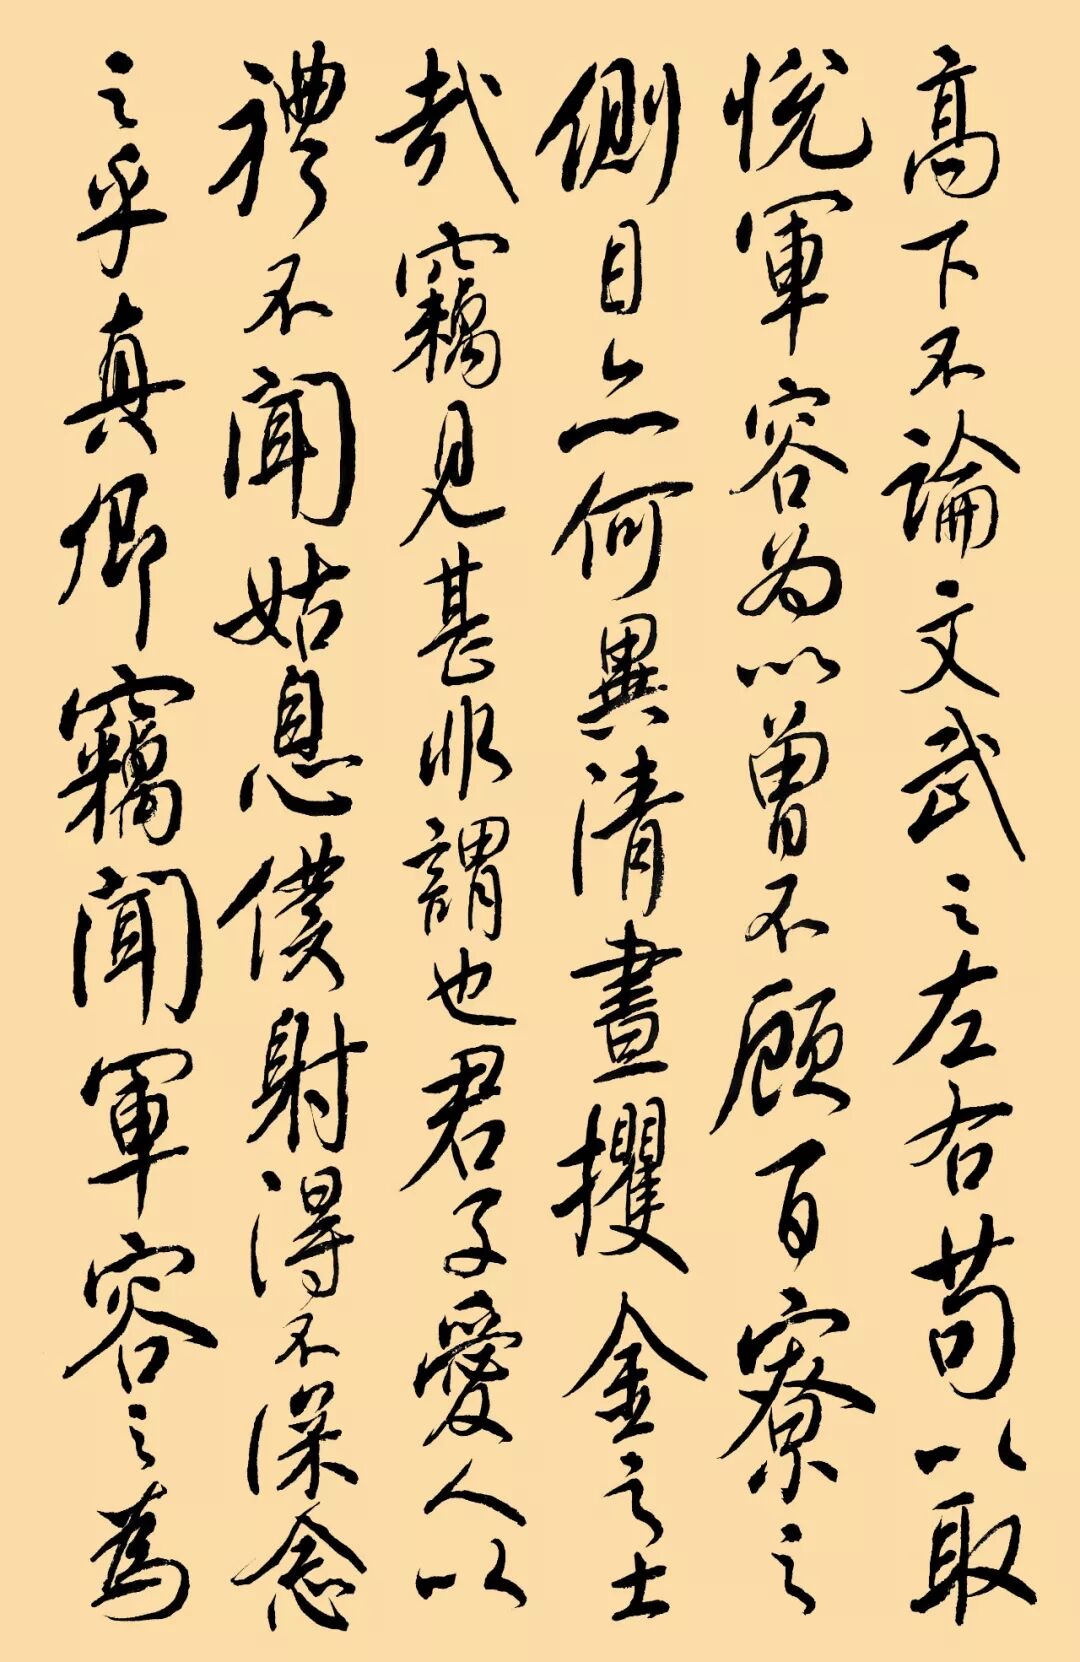 高下不論文武之左右苟以取
悅軍容為以曾不顧百寮之
側目亦何異清晝攫金之士
哉竊見甚非謂也君子愛人以
禮不聞姑息僕射得不深念
之乎真卿竊聞軍容之為